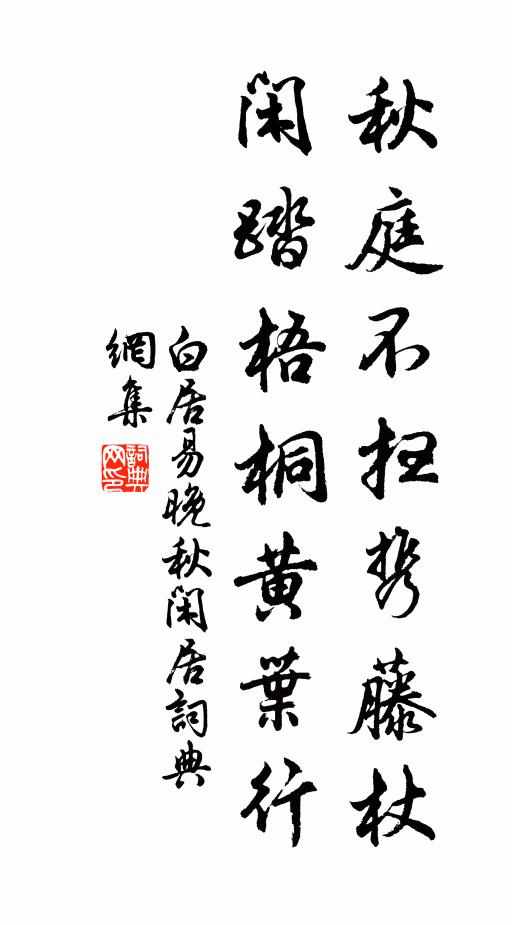 秋庭不扫携藤杖
闲踏梧桐黄葉行
白居易晚秋闲居詞典
網集
詞典
网印